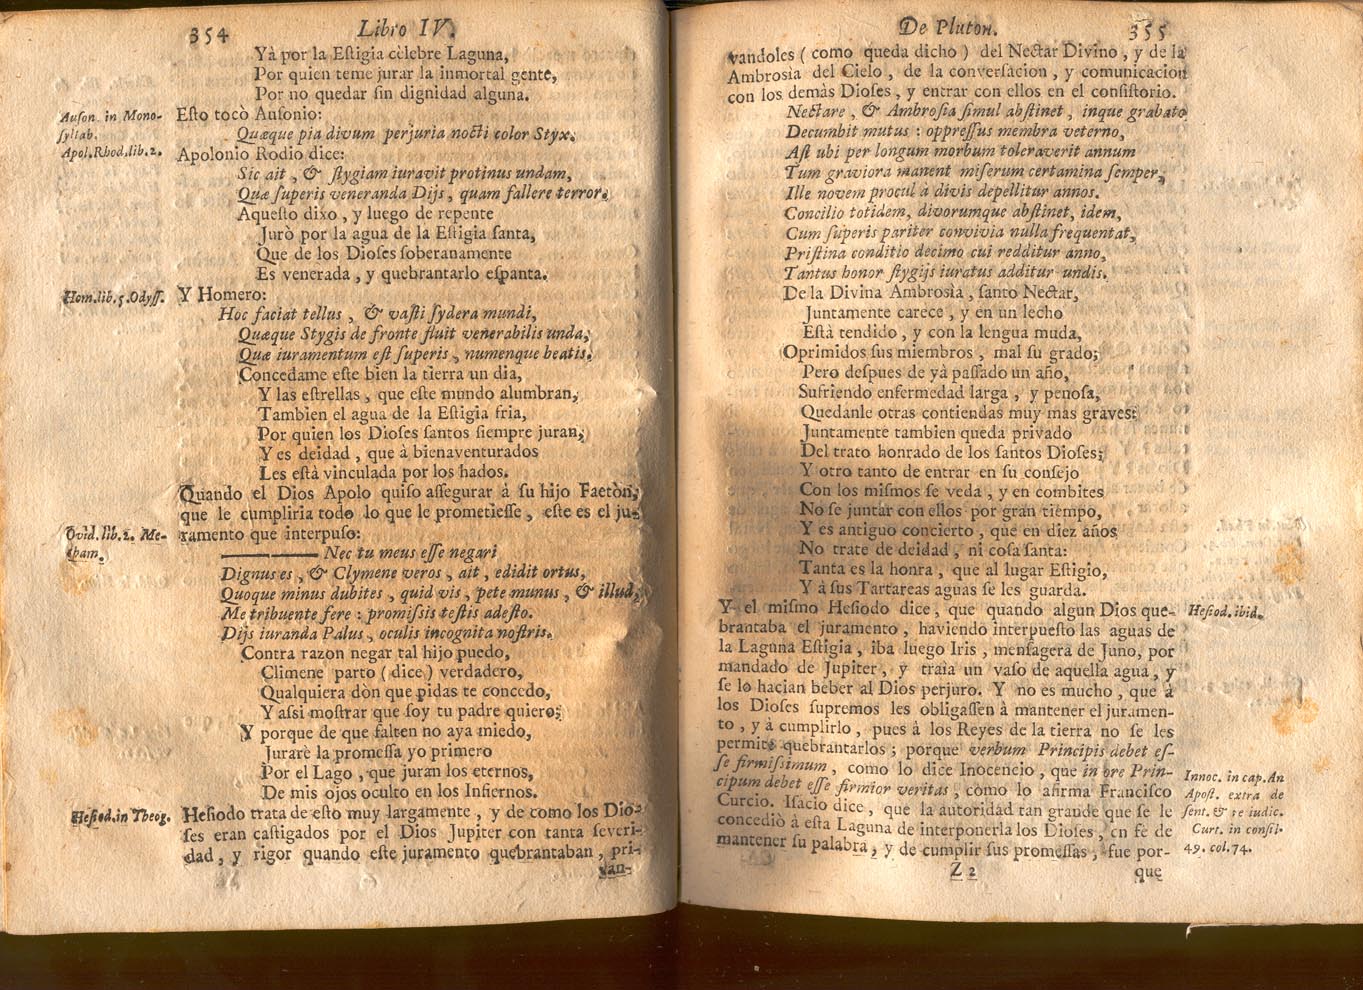 354 Libro IV.
Yà por la Eſtigia cèlebre Laguna,
Por quien teme jurar la inmortal gente,
Por no quedar ſin dignidad alguna.
Auſon. in Mono-
ſyllab.
Eſto tocò Auſonio:
Quæque pia divum perjuria nocti color Styx.
Apol. Rhod. lib. 2.
Apolonio Rodio dice:
Sic ait, & ſtygiam iuravit protinus undam,
Quæ ſuperis veneranda Dijs, quam fallere terror.
Aqueſto dixo, y luego de repente
Jurò por la agua de la Eſtigia ſanta,
Que de los Dioſes ſoberanamente
Es venerada, y quebrantarlo eſpanta.
Hom. lib. 5. Odyſſ.
Y Homero:
Hoc faciat tellus, & vaſti ſydera mundi,
Quæque Stygis de fronte fluit venerabilis unda,
Quæ iuramentum eſt ſuperis, numenque beatis.
Concedame eſte bien la tierra un dia,
Y las eſtrellas, que eſte mundo alumbran,
Tambien el agua de la Eſtigia fria,
Por quien los Dioſes ſantos ſiempre juran,
Y es deidad, que à bienaventurados
Les eſtà vinculada por los hados.
Quando el Dios Apolo quiſo aſſegurar à ſu hijo Faetòn,
que le cumpliria todo lo que le prometieſſe, eſte es el ju-
Ovid. lib. 2. Me-
tham.
ramento que interpuſo:
Nec tu meus eſſe negari
Dignus es, & Clymene veros, ait, edidit ortus,
Quoque minus dubites, quid vis, pete munus, & illud,
Me tribuente fere: promiſsis teſtis adeſto.
Dijs iuranda Palus, oculis incognita noſtris.
Contra razon negar tal hijo puedo,
Climene parto (dice) verdadero,
Qualquiera dòn que pidas te concedo,
Y aſsi moſtrar que ſoy tu padre quiero;
Y porque de que falten no aya miedo,
Jurarè la promeſſa yo primero
Por el Lago, que juran los eternos,
De mis ojos oculto en los Infiernos.
Heſiod. in Theog.
Heſiodo trata de eſto muy largamente, y de como los Dio-
ſes eran caſtigados por el Dios Jupiter con tanta ſeveri-
dad, y rigor quando eſte juramento quebrantaban, pri-
van-
De Pluton. 355
vandoles (como queda dicho) del Nectar Divino, y de la
Ambrosìa del Cielo, de la converſacion, y comunicacion
con los demàs Dioſes, y entrar con ellos en el conſiſtorio.
Nectare, & Ambroſia ſimul abſtinet, inque grabato
Decumbit mutus: oppreſſus membra veterno,
Aſt ubi per longum morbum toleraverit annum
Tum graviora manent miſerum certamina ſemper,
Ille novem procul à divis depellitur annos.
Concilio totidem, divorumque abſtinet, idem,
Cum ſuperis pariter convivia nulla frequentat,
Priſtina conditio decimo cui redditur anno,
Tantus honor ſtygijs iuratus additur undis.
De la Divina Ambrosìa, ſanto Nectar,
Juntamente carece, y en un lecho
Eſtà tendido, y con la lengua muda,
Oprimidos ſus miembros, mal ſu grado;
Pero deſpues de yà paſſado un año,
Sufriendo enfermedad larga, y penoſa,
Quedanle otras contiendas muy mas graves:
Juntamente tambien queda privado
Del trato honrado de los ſantos Dioſes;
Y otro tanto de entrar en ſu conſejo
Con los miſmos ſe veda, y en combites
No ſe juntar con ellos por gran tiempo,
Y es antiguo concierto, que en diez años
No trate de deidad, ni coſa ſanta:
Tanta es la honra, que al lugar Eſtigio,
Y à ſus Tartareas aguas ſe les guarda.
Y el miſmo Heſiodo dice, que quando algun Dios que-
Heſiod. ibid.
brantaba el juramento, haviendo interpueſto las aguas de
la Laguna Eſtigia, iba luego Iris, menſagera de Juno, por
mandado de Jupiter, y traìa un vaſo de aquella agua, y
ſe lo hacian beber al Dios perjuro. Y no es mucho, que à
los Dioſes ſupremos les obligaſſen à mantener el juramen-
to, y à cumplirlo, pues à los Reyes de la tierra no ſe les
permite quebrantarlos; porque verbum Principis debet eſ-
ſe firmiſsimum, como lo dice Inocencio, que in ore Prin-
cipum debet eſſe firmior veritas, como lo afirma Franciſco
Curcio. Iſacio dice, que la autoridad tan grande que ſe le
concediò à eſta Laguna de interponerla los Dioſes, en fè de
mantener ſu palabra, y de cumplir ſus promeſſas, fue por-
Innoc. in cap. An
Apoſt. extra de
ſent. & re iudic.
Curt. in conſil.
49. col. 74.
Z 2 que